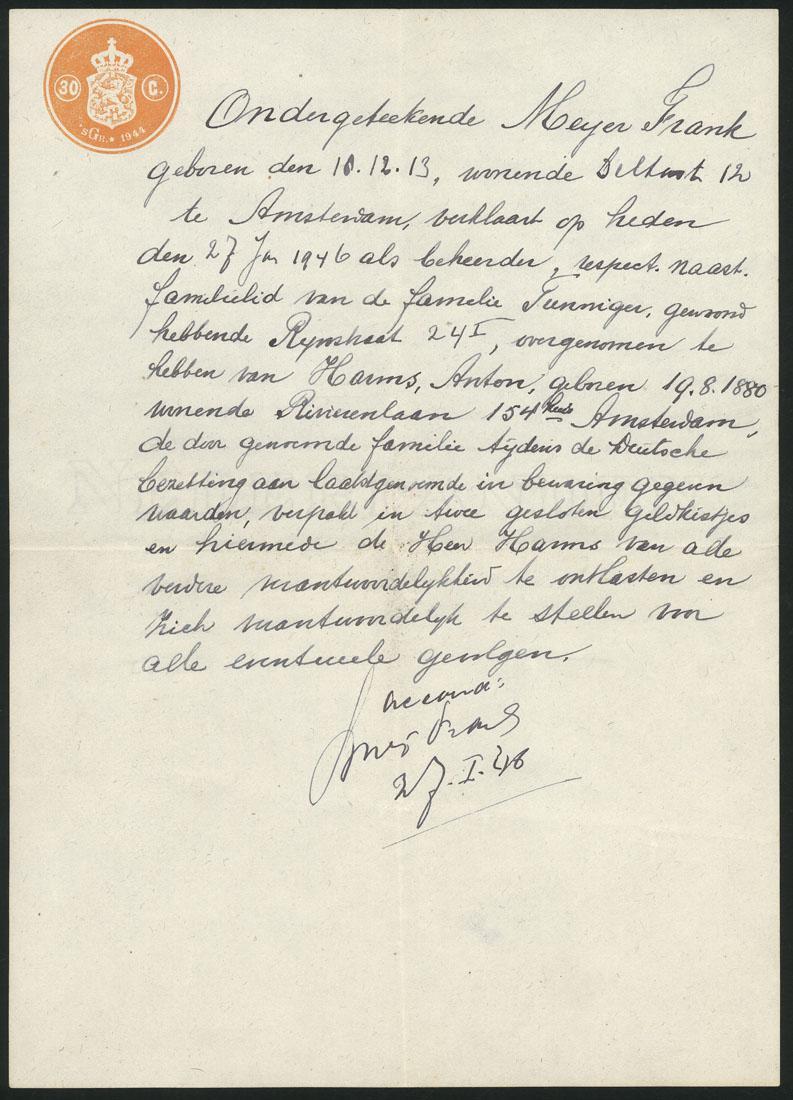 30 C.
sGr.* 1944
Ondergeteekende Meyer Frank
geboren den 10.12.13, wonende 12
te Amsterdam, verklaart op heden
den 27 Jan 1946 als beheerder, respect. naast.
familielid van de familie Tunniger, gewoond
hebbende Rijnstraat 24 I, overgenomen te
hebben van Harms, Anton, geboren 19.8.1880
wonende Rivierenlaan 154 huis Amsterdam,
de door genoemde familie tijdens de Deutsche
bezetting aan laatstgenoemde in bewaring gegeven
waarden, verpakt in twee gesloten geldkistjes
en hiermede de Heer Harms van alle
verdere verantwoordelijkheid te ontlasten en
zich verantwoordelijk te stellen voor
alle eventueele gevolgen.
accoord:
Frank
27.I.46